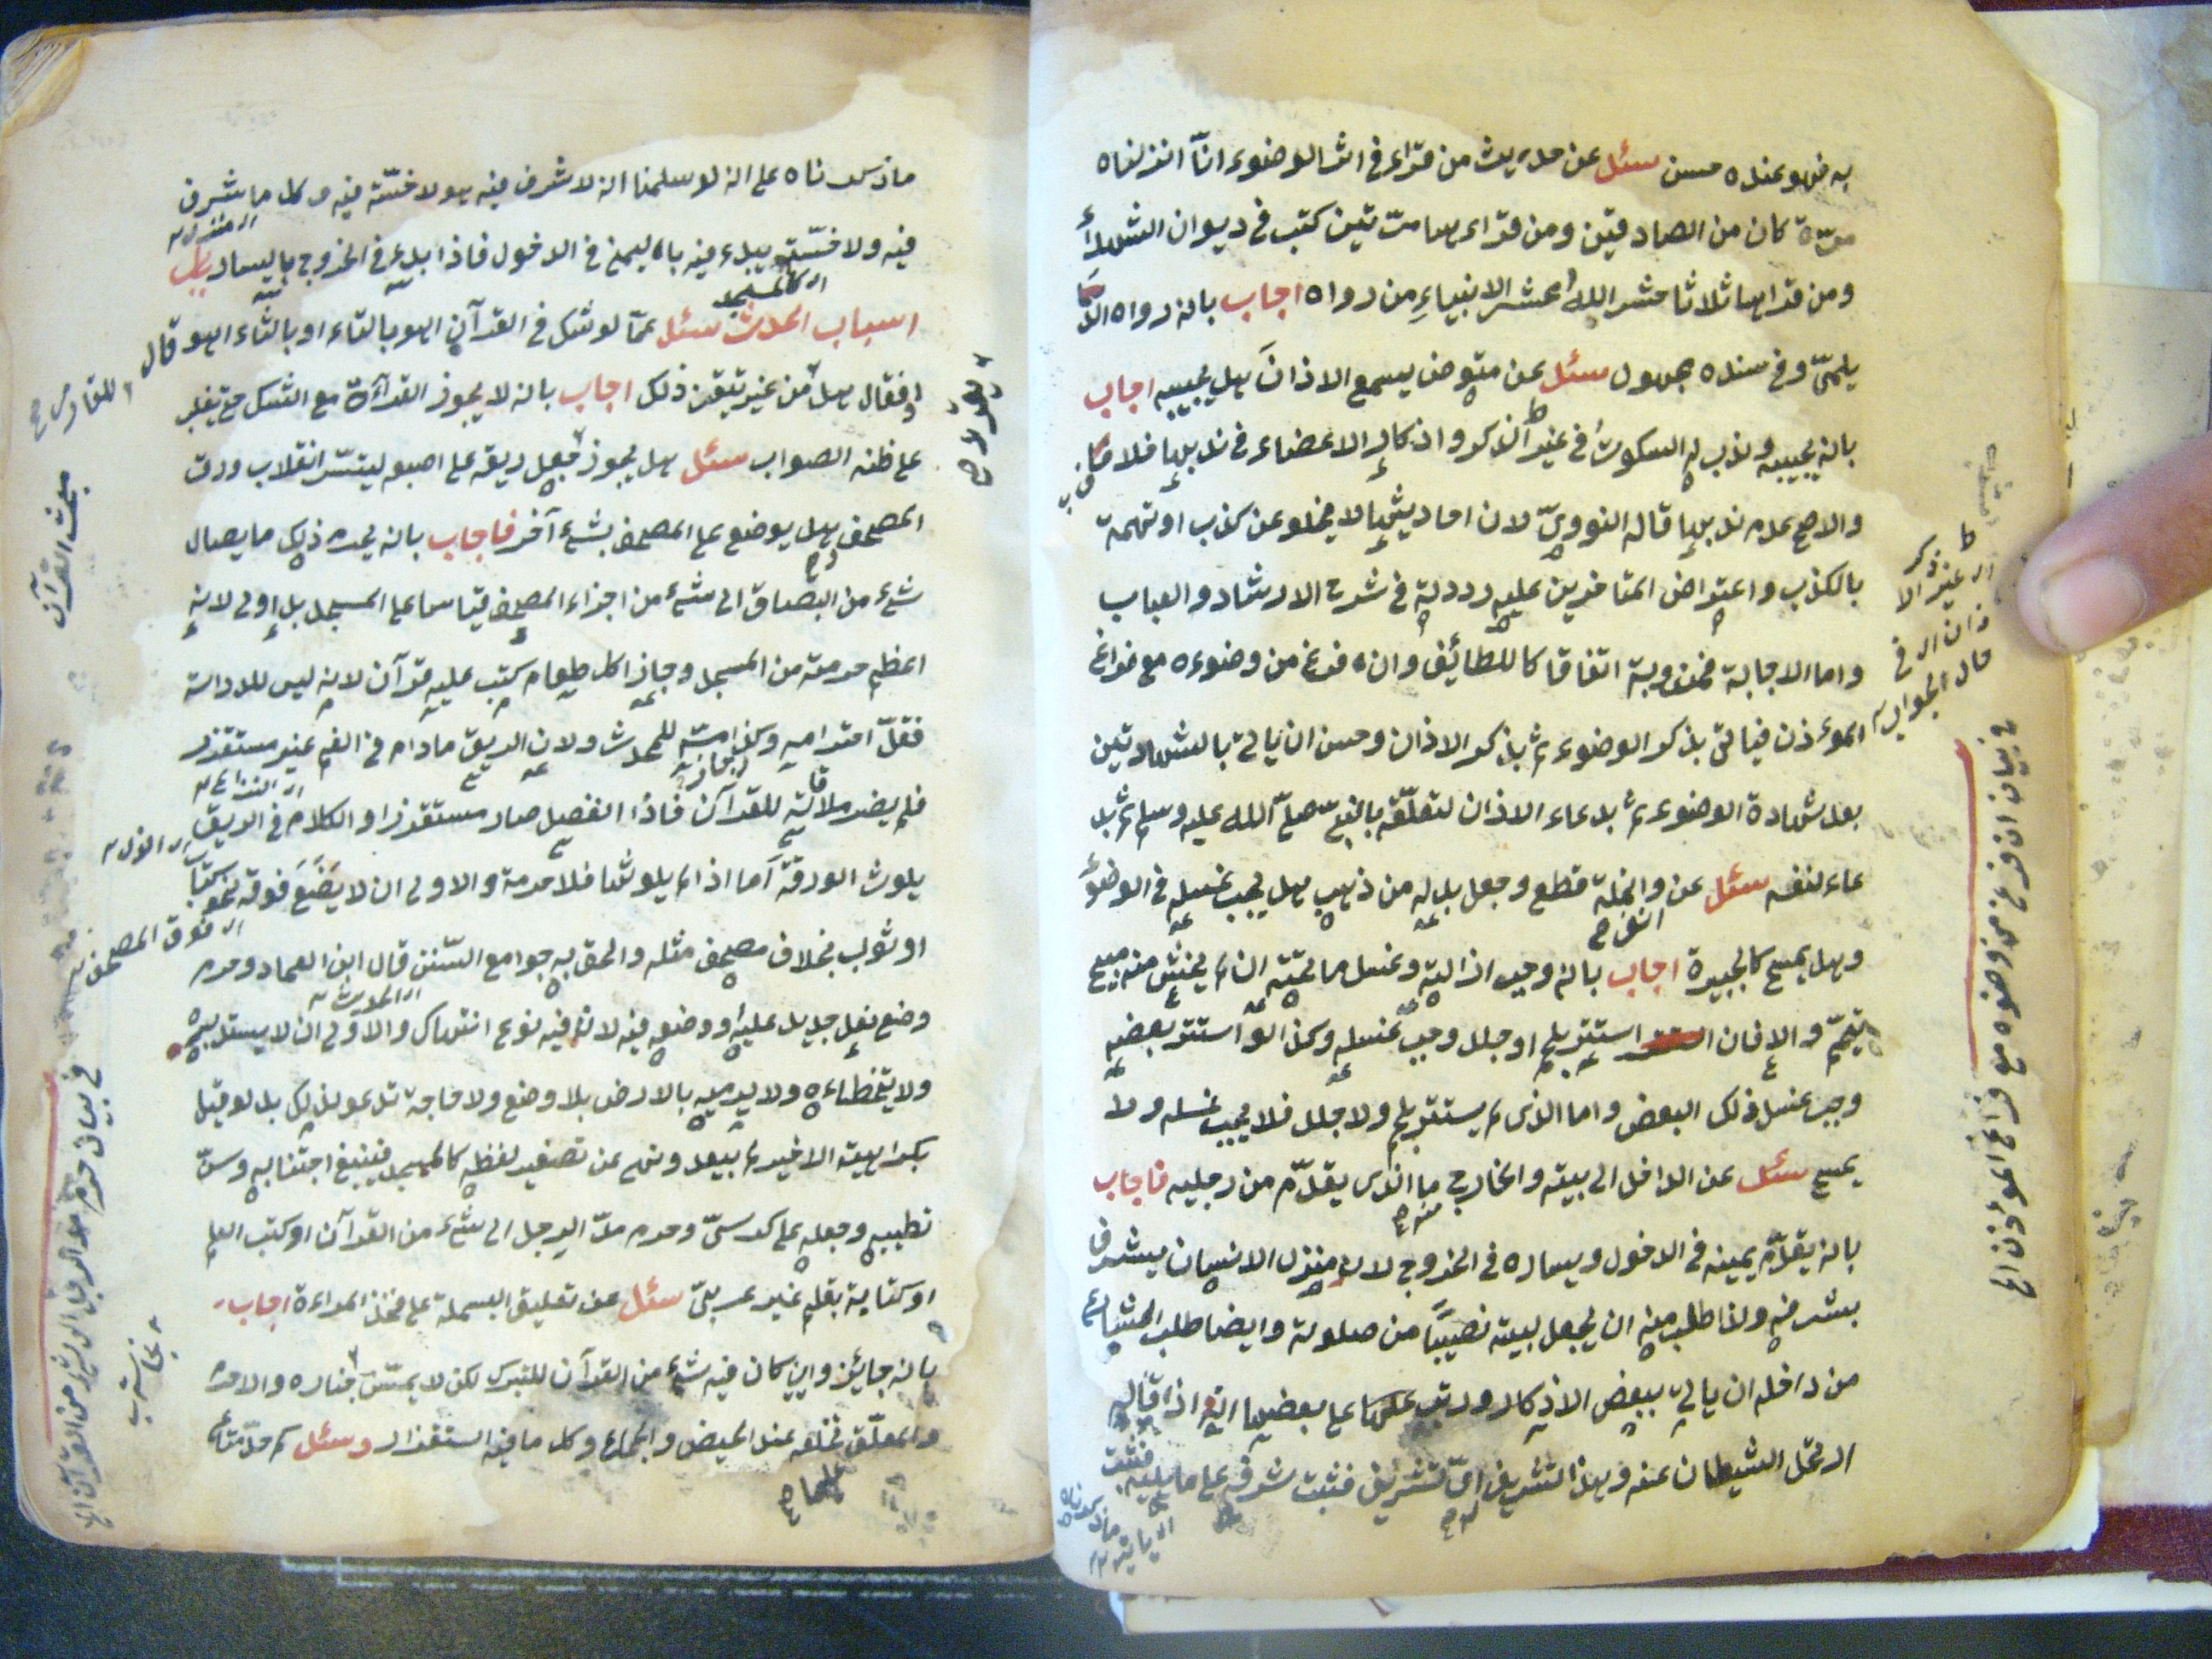 به فهو عنده حسن سئل عن حديث من قراء في اثر الوضوء انا انزلناه
مرة كان من الصادقين ومن قراء ها مرتين كتب في ديوان الشهداء
ومن قراها ثلاثا حشره الله محشر الانبياء من رواه اجاب بانه رواه الد
يلمي وفي سنده مجهول سئل عن متوضئ يسمع الاذان هل يجيبه اجاب
بانه يجيبه وندب له السكوت في غير الذكر واذكار الاعضاء في ندبها خلاف
والاصح عدم ندبها قاله النووي لان احاديثها لا يخلو عن كذب او تهمة
بالكذب واعتراض المتاخرين عليه رددته في شرح الارشاد والعباب
واما الاجابة فمندوبة اتفاقا كالطائف وان فرغ من وضوءه مع فراغ
المؤذن فياتي بذكر الوضوء ثم بذكر الاذان وحسن ان ياتي بالشهادتين
بعد شهادة الوضوء ثم بدعاء الاذان لتعلقه بالنبي صلى الله عليه وسلم ثم بد
عاء لنفسه سئل عن وانملة قطع وجعل بدله من ذهب هل يجب غسله في الوضوء
وهل يمسح كالجبيرة اجاب بانه وجب ازالته وغسل ما تحته ان لم يخش منه مبيح
تيمم والا فان استتر بلحم او جلد وجب غسله وكذا لو استتر بعضه
وجب غسل ذلك البعض واما الذي لم يستتر بلحم ولا جلد فلا يجب غسله ولا
يمسح سئل عن الداخل الى بيته والخارج ما الذي يقدم من رجليه فاجاب
بانه يقدم يمينه في الدخول ويساره في الخروج لان منزل الانسان يشرف
بشرفه ولذا طلب منه ان يجعل لبيته نصيبا من صلوته وايضا طلب الشارع
من داخله ان ياتي ببعض الاذكار ورتب على بعضها انه اذا قاله
ارتحل الشيطان عنه وهذا تشريف اي تشريف فثبت شرفه على ما يليه
في بيان ان فرغ من وضوءه مع فراغ المؤذن الخ
ما ذكرناه على انه لو سلمنا انه لا شرف فيه هو لا خسة فيه وكل ما شرف
فيه ولا خسة يبدء فيه باليمنى في الدخول فاذا بدء في الخروج باليسار باب
اسباب الحدث سئل عما لو شك في القرآن اهو بالتاء او بالثاء اهو قال
او فقال هل من غير تيقن ذلك اجاب بانه لا يجوز القرآءة مع الشك حتى يغلب
على ظنه الصواب سئل هل يجوز جعل ريقه على اصبعه ليتيسر انقلاب ورق
المصحف وهل يوضع على المصحف بشئ آخر فاجاب بانه يحرم ذلك ما يصال
شئ من البصاق الى شئ من اجزاء المصحف قياسا على المسجد بل اولى لانه
اعظم حرمة من المسجد وجاز اكل طعام كتب عليه قرآن لانه ليس للدراسة
فقل احترامه وكذا مسه للمحدث ولان الريق مادام في الفم غير مستقذر
فلم يضر ملاقاته للقرآن فاذا انفصل صار مستقذرا والكلام في الريق
يلوث الورقة اما اذا لم يلوثها فلا حرمة والاولى ان لا يضع فوقه نحو كتاب
او ثوب بخلاف مصحف مثله والحق به جوامع السنن قال ابن العماد وحرم
وضع نعل جديد عليه ووضعه فيه لان فيه نوع انتهاك والاولى ان لا يستدبره
ولا يتخطاءه ولا يرميه بالارض بلا وضع ولا حاجة تدعو لذلك بل لو قيل
بكراهية الاخير لم يبعد ونهي عن تصغير لفظه كالمسجد فينبغي اجتنابه وسن
تطييبه وجعله على كرسي وحرم مد الرجل الى شئ من القرآن او كتب العلم
او كتابة بقلم غير عربي سئل عن تعليق البسملة على فخذ المراءة اجاب
بانه جايز وان كان فيه شئ من القرآن للتبرك
والمعلق تخلعه عند الحيض والجماع وكل ما فيه استقذار وسئل
مبحث القرآن
في بيان حرم مد الرجل الى شئ من القرآن الخ